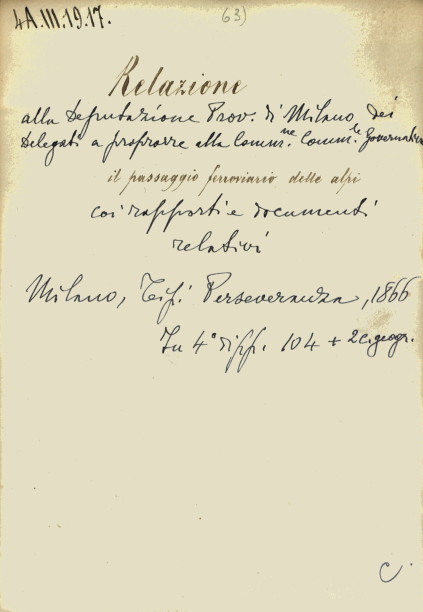 4A.III.19.17.
63)
Relazione
alla Deputazione Prov. di Milano, dei
Delegati a proporre alla Comm.ne Comm.le Governativa
il passaggio ferroviario delle alpi
coi rapporti e documenti
relativi
Milano, Tip. Perseveranza, 1866
In 4° di pp. 104 + 2 c. geogr.
C.